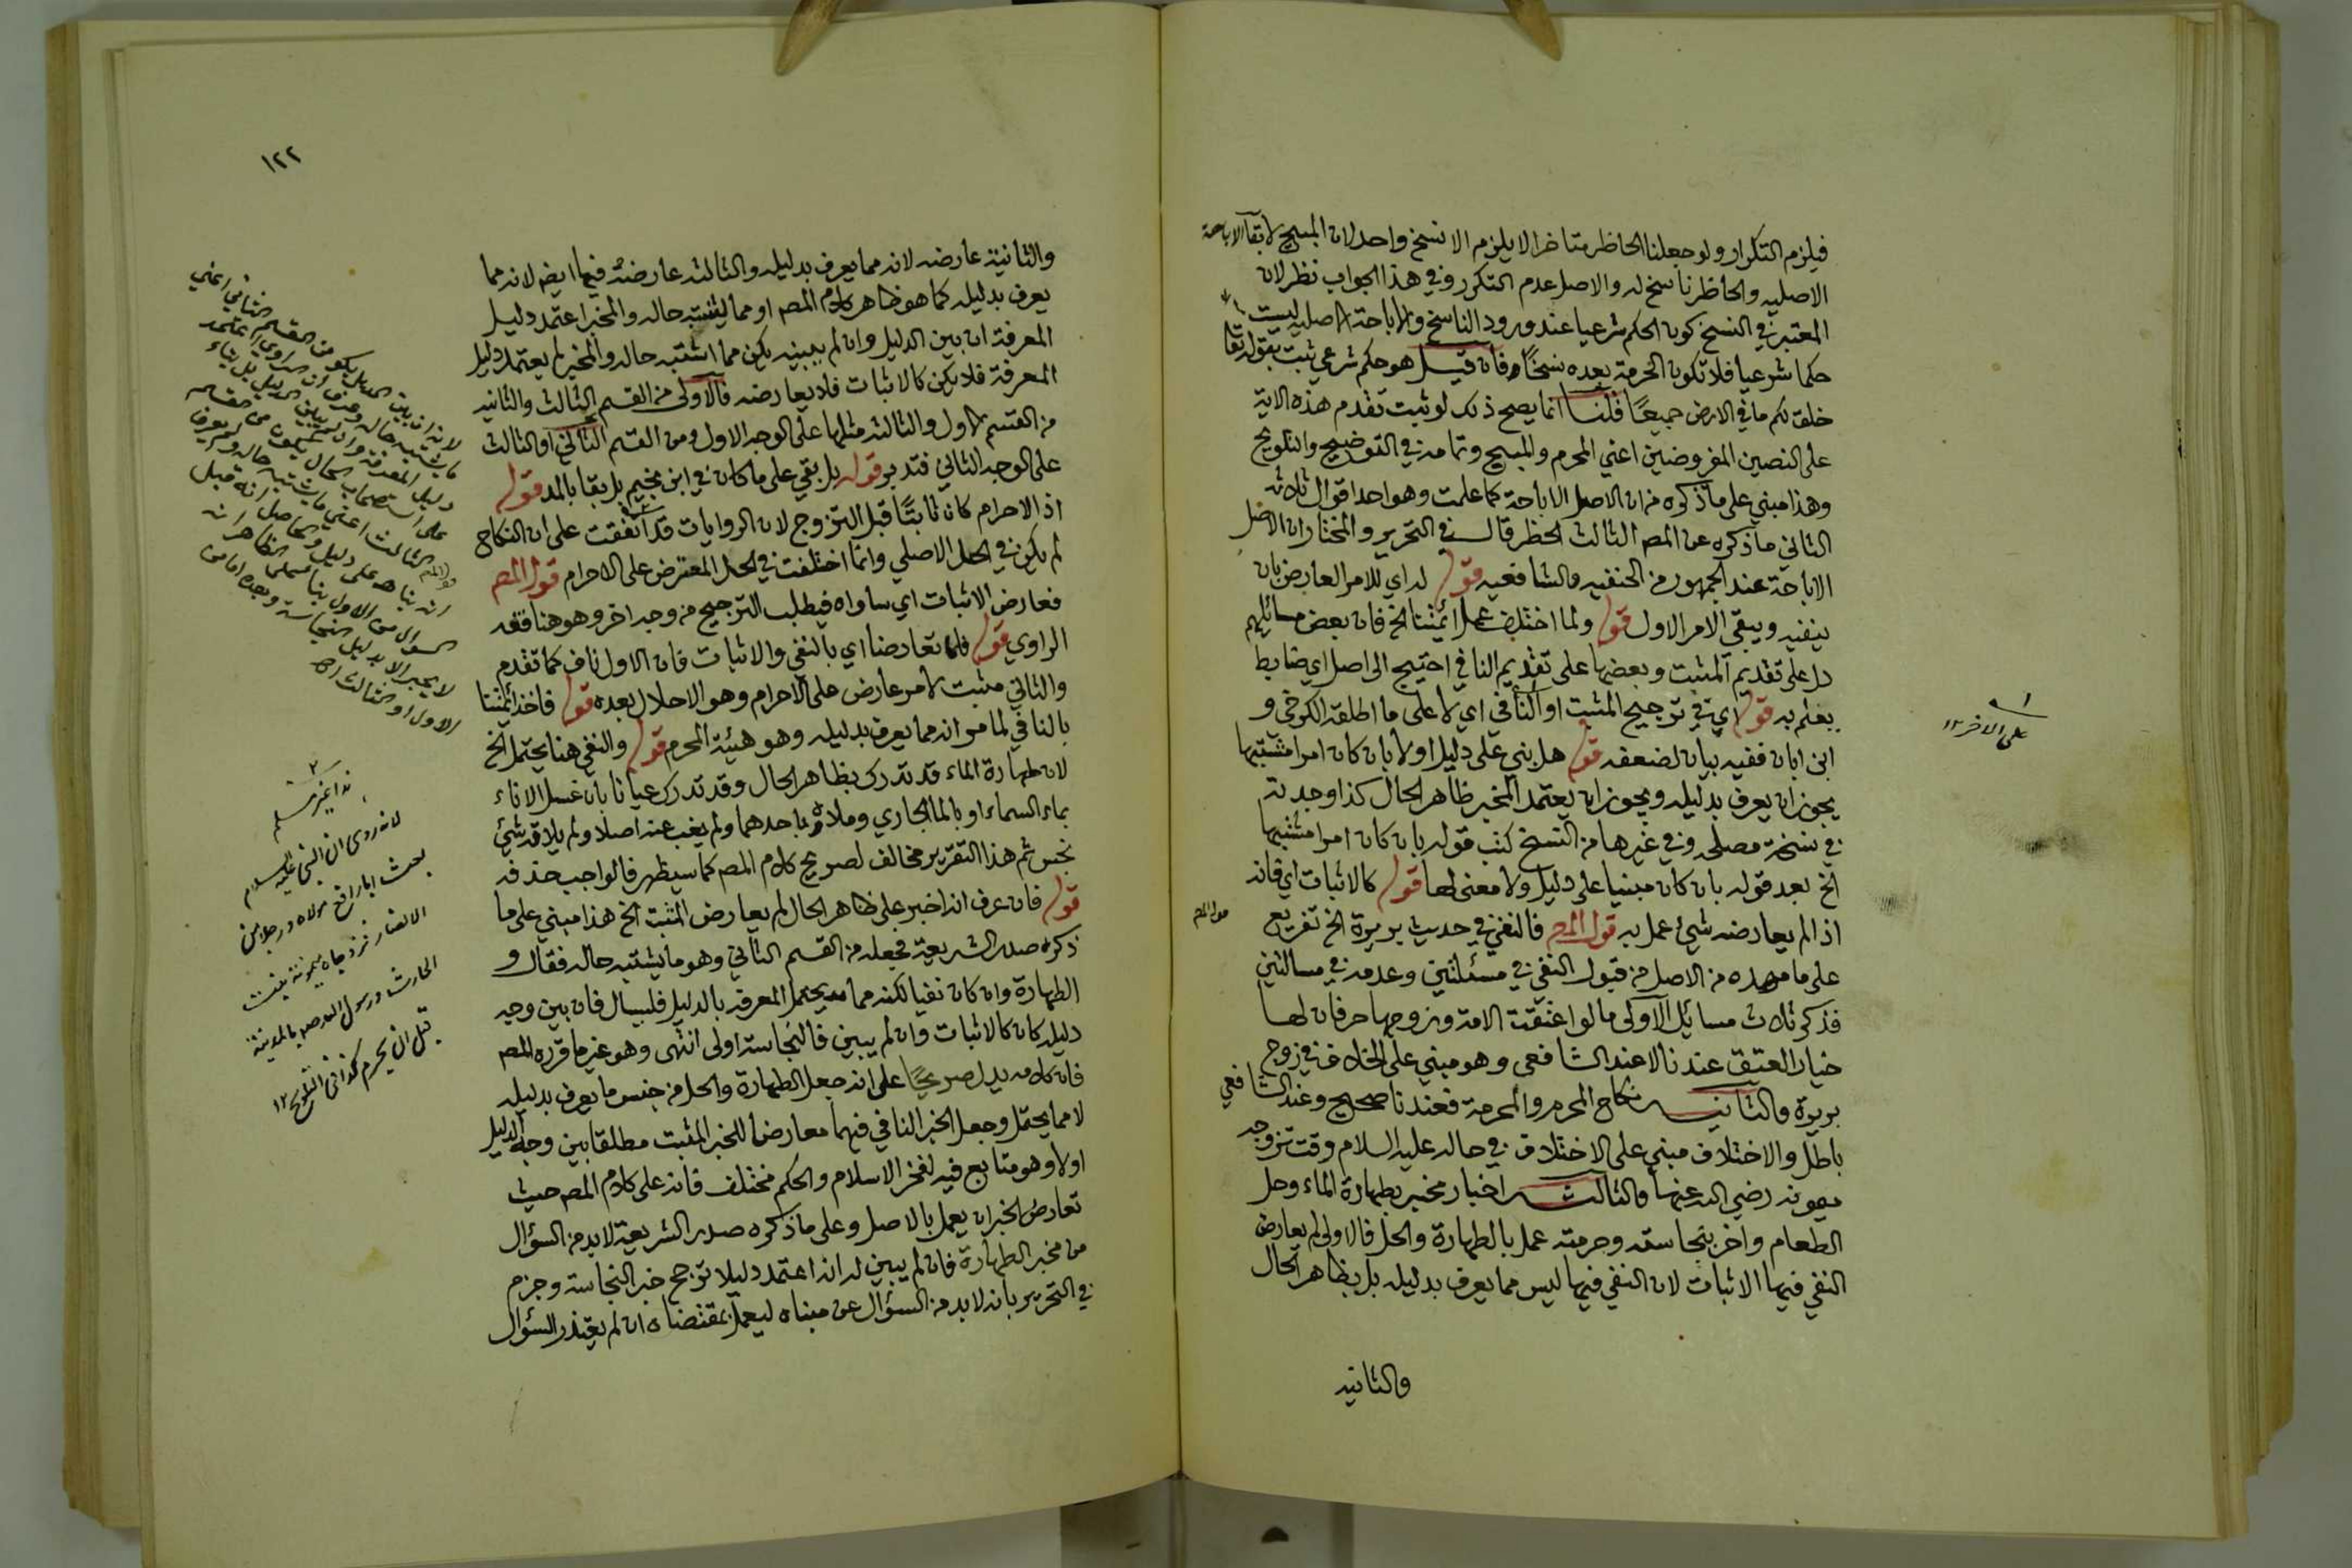 فيلزم التكرار ولو جعلنا الحاظر متاخرا لا يلزم الا نسخ واحد لان المبيح لابقآء الاباحة
الاصليه والحاظر ناسخ له والاصل عدم التكرر وفي هذا الجواب نظر لان
المعتبر في النسخ كون الحكم شرعيا عند ورود الناسخ والاباحة الاصليه ليست
حكما شرعيا فلا تكون الحرمة بعده نسخًا فان قيل هو حكم شرعي ثبت بقوله تعا
خلق لكم ما في الارض جميعًا قلنا انما يصح ذلك لو ثبت تقدم هذه الاية
على النصين المفروضين اعني المحرم والمبيح وتمامه في التوضيح والتلويح
وهذا مبني على ما ذكره من ان الاصل الاباحة كما علمت وهو احد اقوال ثلاثة
الثاني ما ذكره عن المصـ الثالث الحظر قال في التحرير والمختار ان الاصل
الاباحة عند الجمهور من الحنفيه والشافعيه قوله له اي للامر العارض بان
ينفيه ويبقى الامر الاول قوله ولما اختلف عمل ائمتنا الخ فان بعض مسائلهم
دل على تقديم المثبت وبعضها على تقديم النافي احتيج الى اصل اي ضابط
يعلم به قوله اي في ترجيح المثبت او النافي اي لا على ما اطلقه الكرخي و
ابن ابان ففيه بيان لضعفه قوله هل بني على دليل اولا بان كان امرا مشتبها
يجوز ان يعرف بدليله ويجوز ان يعتمد المخبر ظاهر الحال كذا وجدته
في نسخة مصلحه وفي غيرها من النسخ كتب قوله بان كان امرا مشتبها
الخ بعد قوله بان كان مبنيا على دليل ولا معنى لها قوله كالاثبات اي فانه
اذا لم يعارضه شيئ عمل به قول المصـ فالنفي في حديث بريرة الخ تفريع
على ما مهده من الاصل من قبول النفي في مسئلتين وعدمه في مسالتين
فذكر ثلاث مسائل الاولى ما لو اعتقت الامة وزوجها حر فان لها
خيار العتق عندنا لا عند الشافعي وهو مبني على الخلاف في زوج
بريرة والثانيه نكاح المحرم والمحرمة فعندنا صحيح وعند الشافعي
باطل والاختلاف مبني على الاختلاف في حاله عليه السلام وقت تزوجه
ميمونه رضي الله عنها والثالثه اخبار مخبر بطهارة الماء وحل
الطعام واخر بنجاسته وحرمته عمل بالطهارة والحل فالاولى لم يعارض
النفي فيها الاثبات لان النفي فيها ليس مما يعرف بدليله بل بظاهر الحال
والثانيه
على الاخر ١٢
١٢٢
والثانية عارضه لانه مما يعرف بدليله والثالثه عارضهُ فيها ايضـ لانه مما
يعرف بدليله كما هو ظاهر كلام المصـ او مما يشتبه حاله والمخبر اعتمد دليل
المعرفة ان بين الدليل وان لم يبينه يكن مما اشتبه حاله والمخبر لم يعتمد دليل
المعرفة فلا يكن كالاثبات فلا يعارضه فالاولى من القسم الثالث والثانيه
من القسم الاول والثالثه مثلها على الوجه الاول ومن القسم الثاني او الثالث
على الوجه الثاني فتدبر قوله بل بقي على ما كان في ابن نجيم بل بقا بالمد قوله
اذ الاحرام كان ثابتًا قبل التزوج لان الروايات قد اتفقت على ان النكاح
لم يكن في الحل الاصلي وانما اختلفت في الحل المعترض على الاحرام قول المصـ
فعارض الاثبات اي ساواه فيطلب الترجيح من وجه اخر وهو هنا فقه
الراوي قوله فلما تعارضا اي بالنفي والاثبات فان الاول ناف كما تقدم
والثاني مثبت لامر عارض على الاحرام وهو الاحلال بعده قوله فاخذ ائمتنا
بالنافي لما مر انه مما يعرف بدليله وهو هيئة المحرم قوله والنفي هنا يحتمل الخ
لان طهارة الماء قد تدرك بظاهر الحال وقد تدرك عيانا بان غسل الاناء
بماء السماء او بالما الجاري وملاه باحدهما ولم يغب عنه اصلا ولم يلاقه شيئ
نجس ثم هذا التقرير مخالف لصريح كلام المصـ كما سيظهر فالواجب حذفه
قوله فان عرف انه اخبر على ظاهر الحال لم يعارض المثبت الخ هذا مبني على ما
ذكره صدر الشريعة فجعله من القسم الثاني وهو ما يشتبه حاله فقال و
الطهارة وان كان نفيا لكنه مما يحتمل المعرفه بالدليل فليسال فان بين وجه
دليله كان كالاثبات وان لم يبين فالنجاسة اولى انتهى وهو غير ما قرره المصـ
فان كلامه يدل صريحًا على انه جعل الطهارة والحل من جنس ما يعرف بدليله
لا مما يحتمل وجعل الخبر النافي فيهما معارضا للخبر المثبت مطلقا بين وجه الدليل
اولا وهو متابع فيه لفخر الاسلام والحكم مختلف فانه على كلام المصـ حيث
تعارض الخبران يعمل بالاصل وعلى ما ذكره صدر الشريعة لا بد من السؤال
من مخبر الطهارة فان لم يبين له انه اعتمد دليلا ترجح خبر النجاسة وجزم
في التحرير بانه لا بد من السؤال عن مبناه ليعمل بمقتضاه ان لم يتعذر السؤال
لانه روى ان النبي عليه السلام
بعث ابا رافع مولاه ورجلا من
الانصار فزوجاه ميمونة بنت
الحارث ورسول الله صـ بالمدينة
قبل ان يحرم كذا في التلويح ١٢